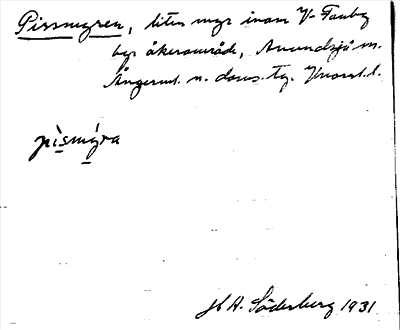 Pissmyren, liten myr inom V. Tanby
bys åkerområde, Anundsjö sn.
Ångerml. n. doms. Tg. Vnorrl. l.
pìsmýra
H. A. Söderberg 1931